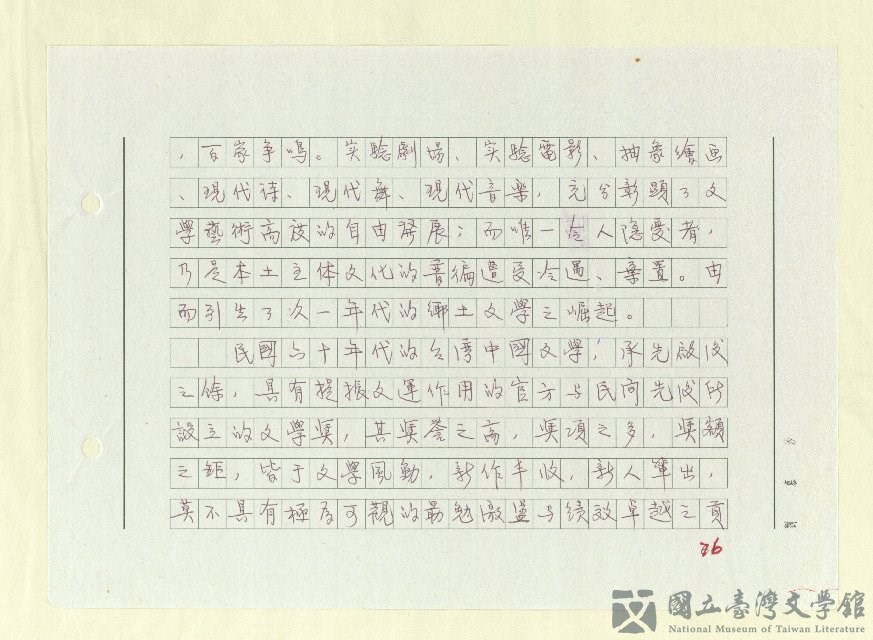 ，百家争鳴。实驗劇場、实驗電影、抽象繪画
、現代诗、現代舞、現代音樂，充分彰顯了文
學藝術高度的自由發展；而唯一令人隐憂者，
乃是本土主体文化的普徧遭受冷遇、棄置。由
而引生了次一年代的鄉土文學之崛起。
民國六十年代的台湾中國文學，承先啟後
之餘，具有提振文運作用的官方与民间先後所
設立的文學奬，其奬荟之高，奬項之多，奬額
之鉅，皆于文學風動，新作丰收，新人輩出，
莫不具有極為可觀的勗勉激盪与績效卓越之貢
36
國立臺灣文學館
National Museum of Taiwan Literature